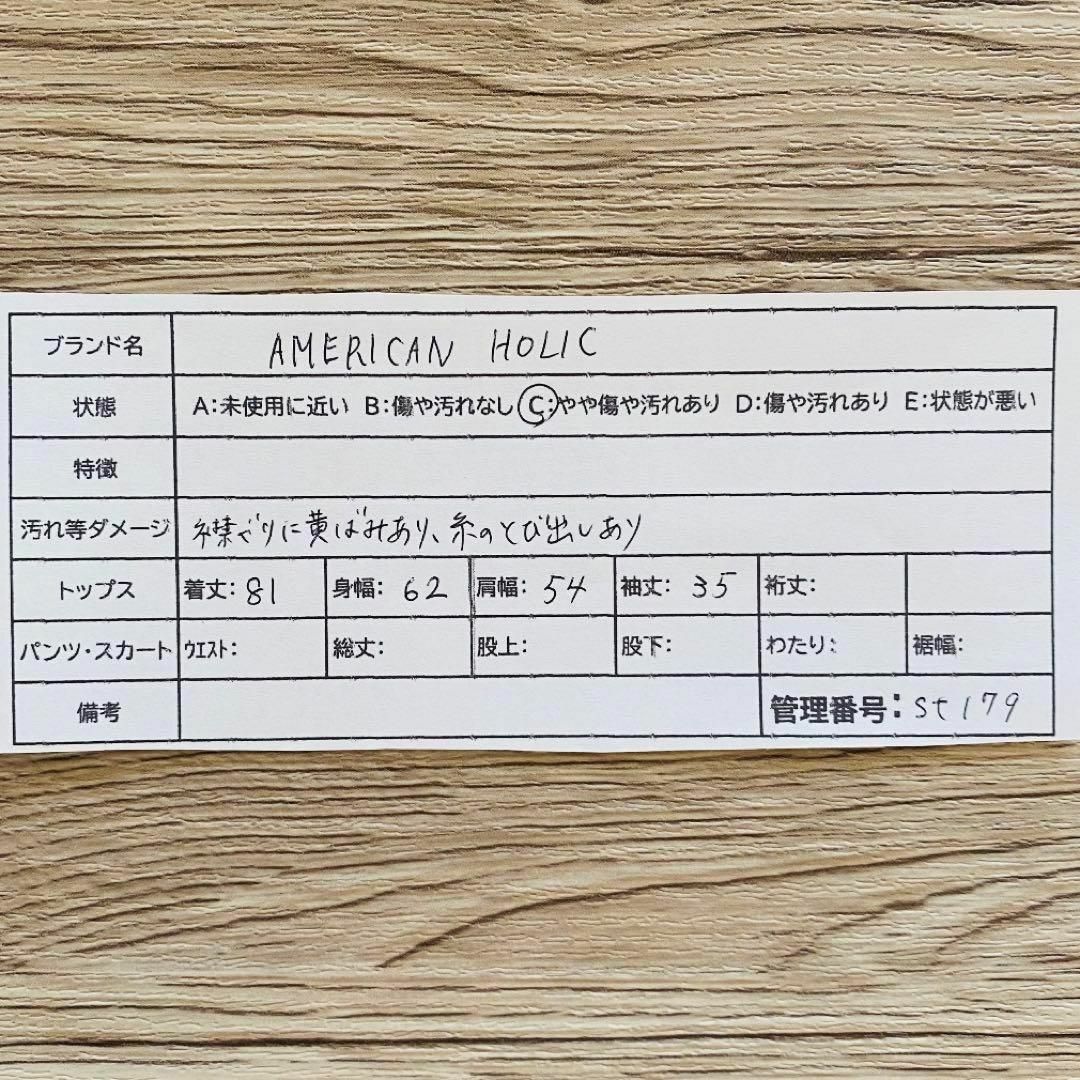 ブランド名 AMERICAN HOLIC
状態 A:未使用に近い B:傷や汚れなし C:やや傷や汚れあり D:傷や汚れあり E:状態が悪い
特徴
汚れ等ダメージ 襟ぐりに黄ばみあり、糸のとび出しあり
トップス 着丈:81 身幅:62 肩幅:54 袖丈:35 裄丈:
パンツ・スカート ウエスト: 総丈: 股上: 股下: わたり: 裾幅:
備考 管理番号:st179